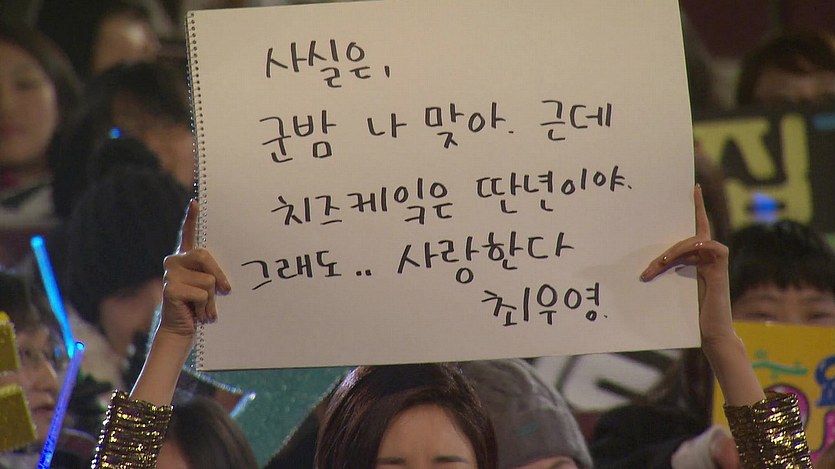 사실은,
군밤 나 맞아. 근데
치즈케익은 딴년이야.
그래도.. 사랑한다
최우영.
집